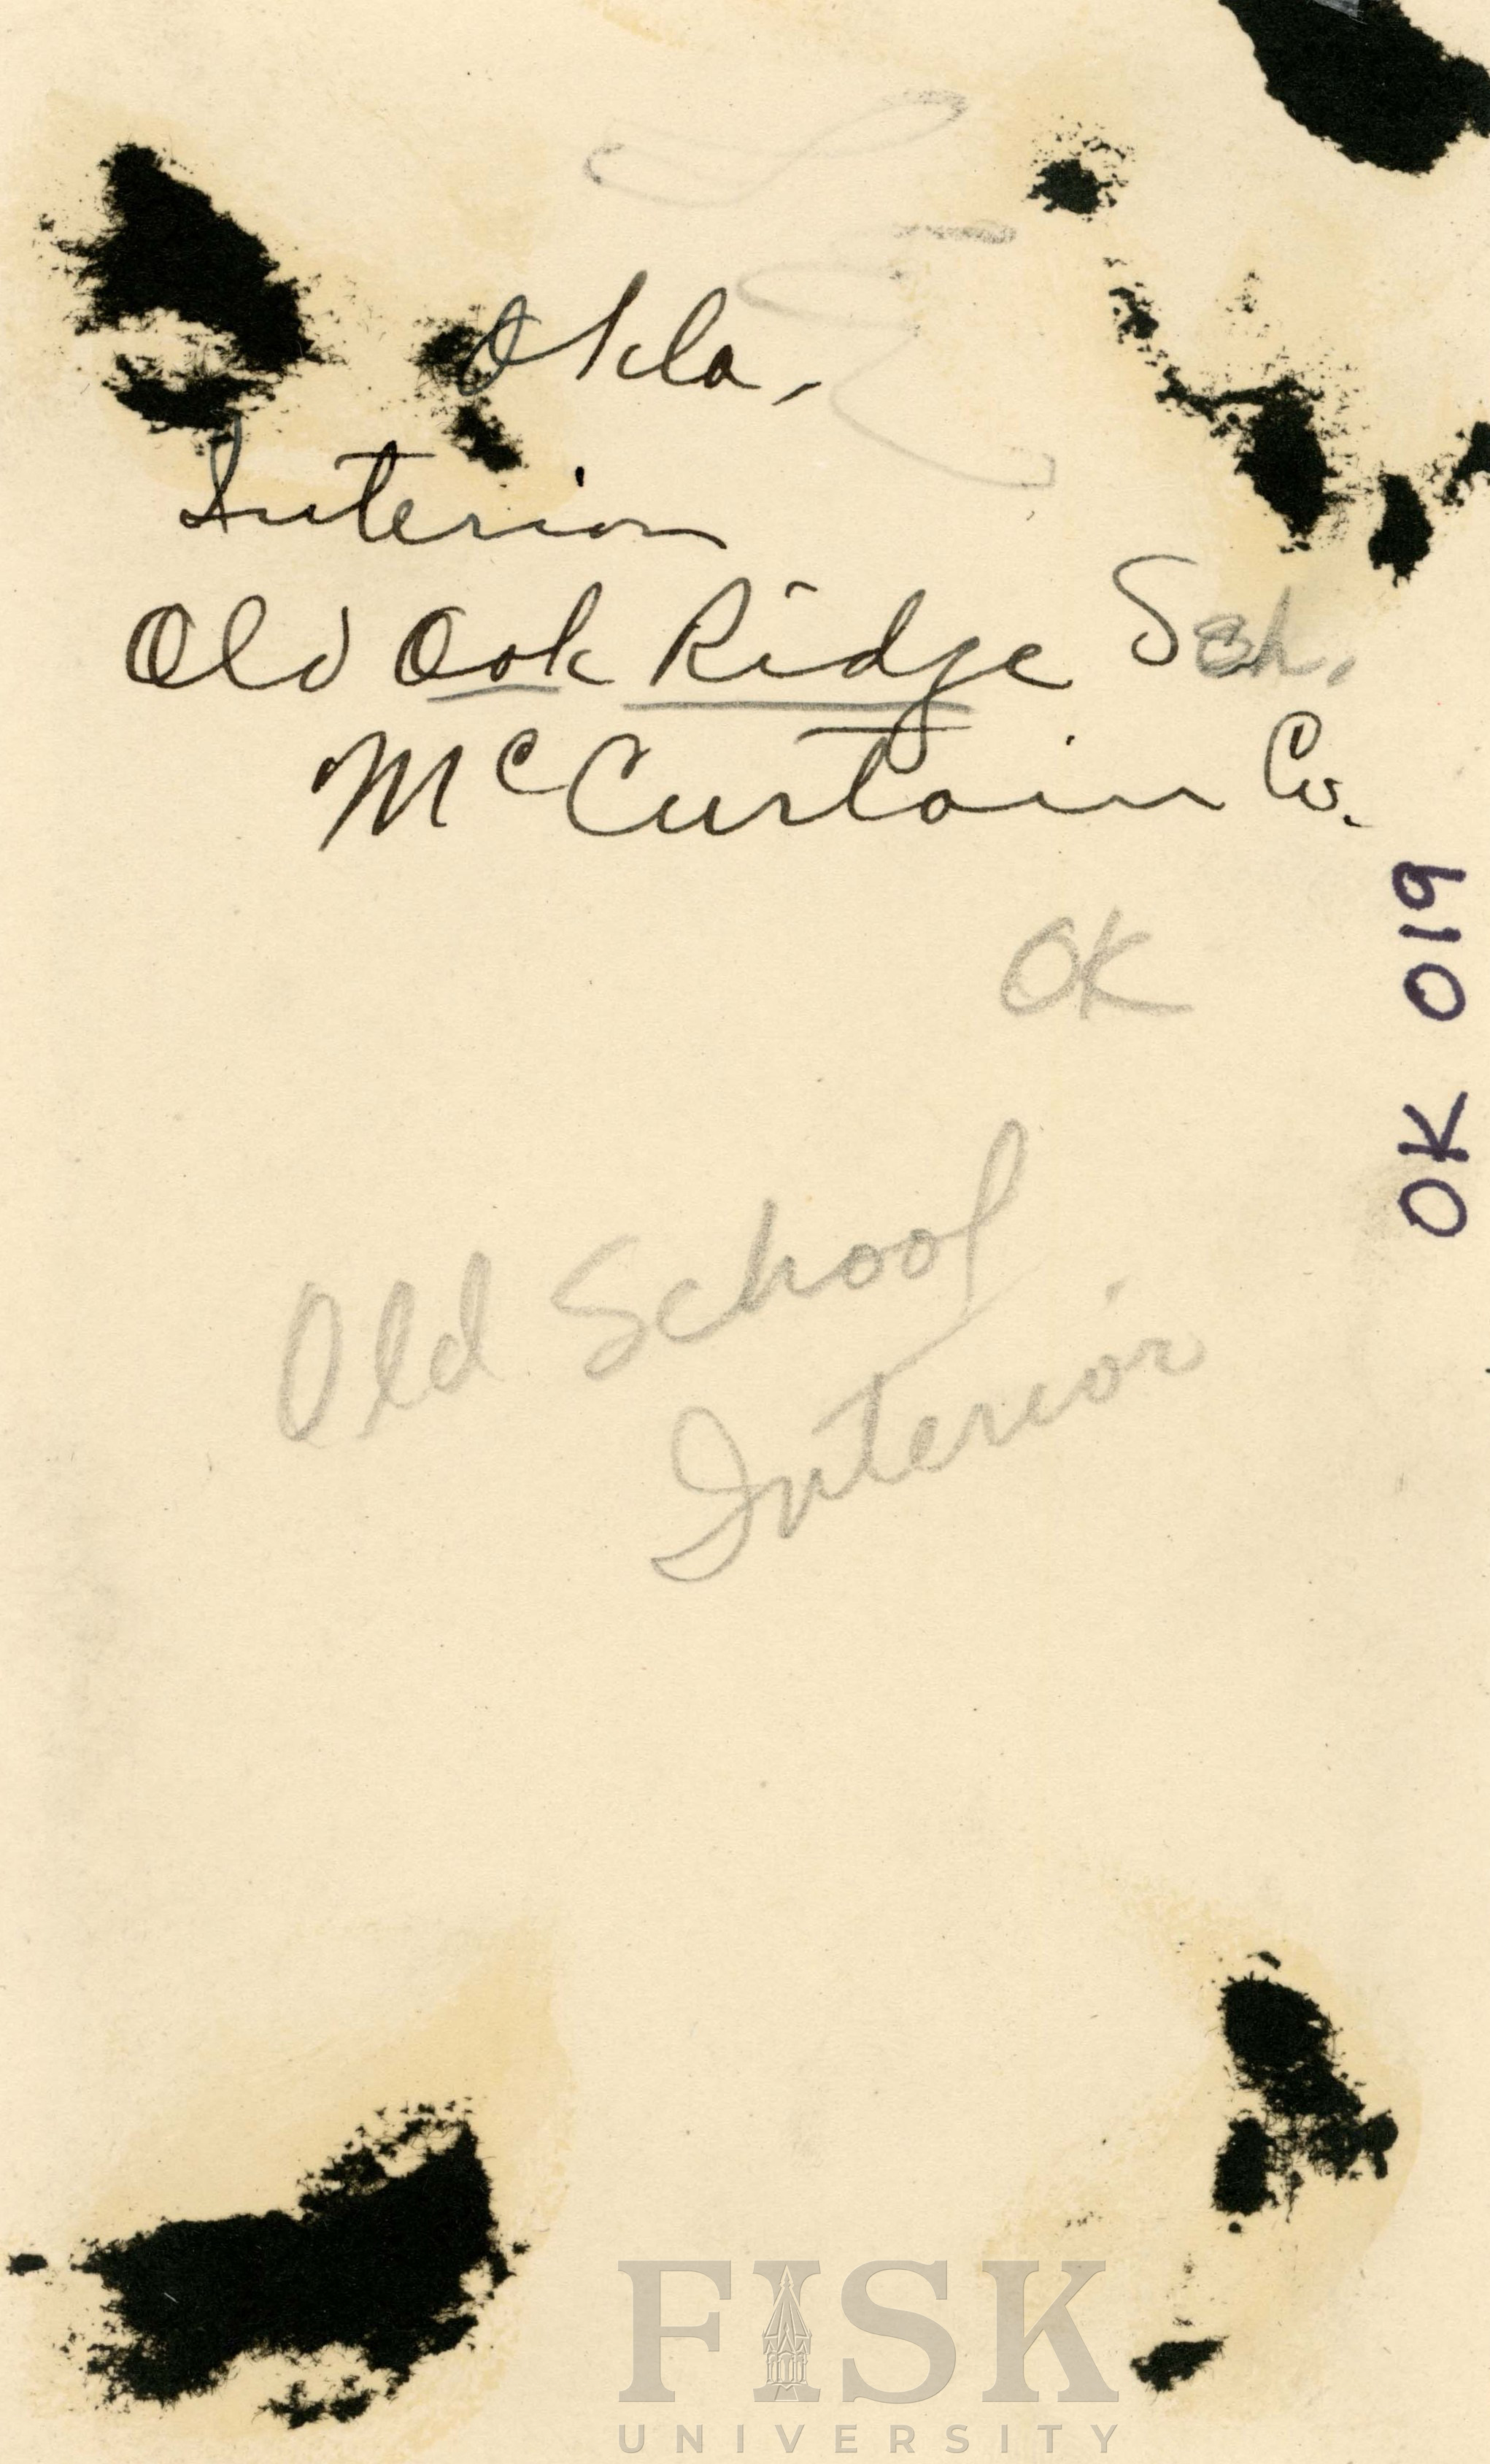 Okla.
Interior
Old Oak Ridge Sch.
McCurtain Co.
OK
OK 019
Old School
Interior
FISK
UNIVERSITY